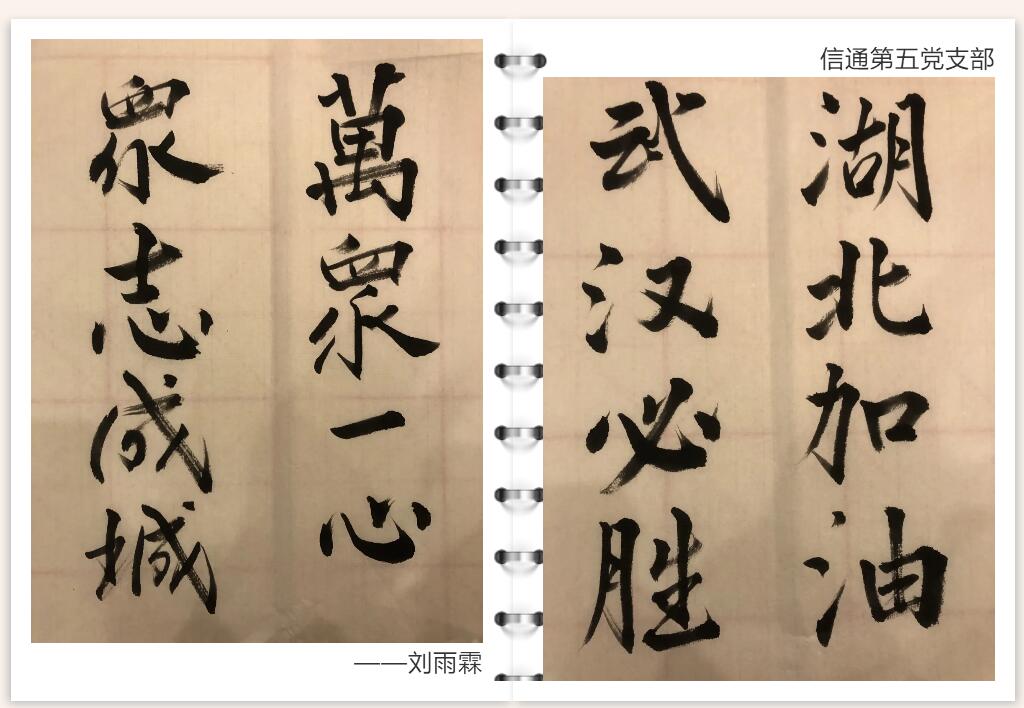 萬眾一心
眾志成城
——刘雨霖
信通第五党支部
湖北加油
武汉必胜